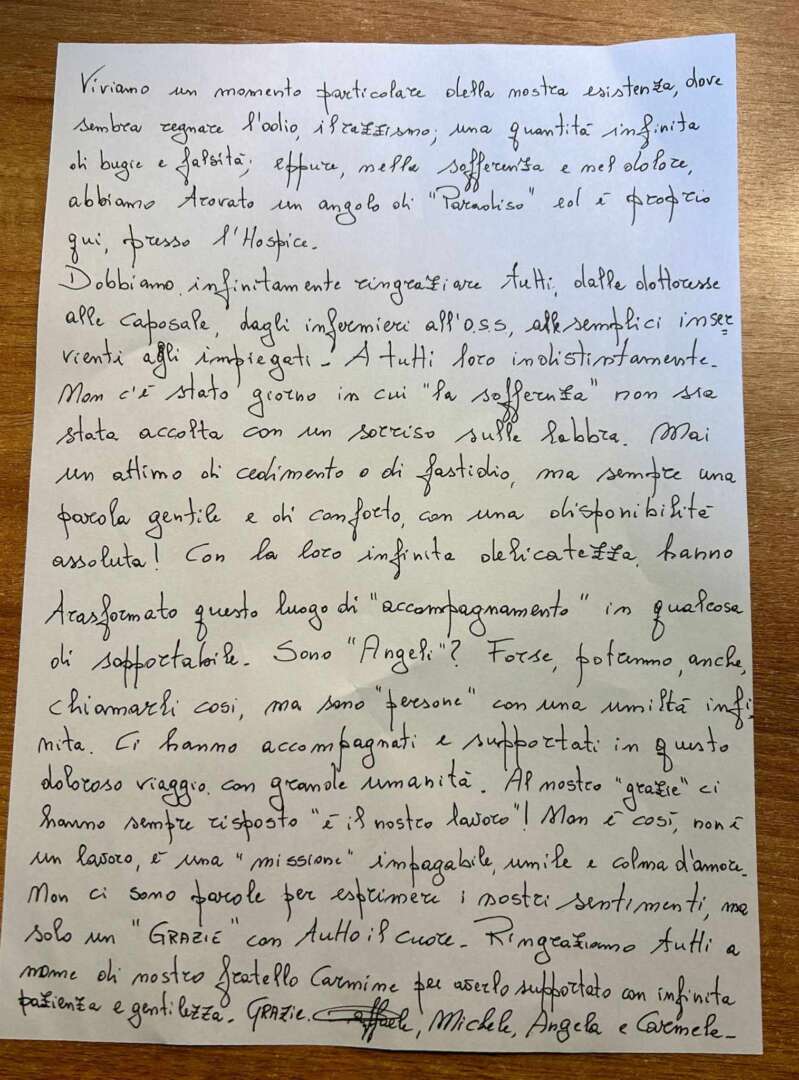 Viviamo un momento particolare della nostra esistenza, dove
sembra regnare l'odio, il razzismo; una quantità infinita
di bugie e falsità; eppure, nella sofferenza e nel dolore,
abbiamo trovato un angolo di "Paradiso" ed è proprio
qui, presso l'Hospice.
Dobbiamo infinitamente ringraziare tutti, dalle dottoresse
alle caposale, dagli infermieri all'O.S.S, alle semplici inser
vienti agli impiegati - A tutti loro indistintamente.
Non c'è stato giorno in cui "la sofferenza" non sia
stata accolta con un sorriso sulle labbra. Mai
un attimo di cedimento o di fastidio, ma sempre una
parola gentile e di conforto, con una disponibilità
assoluta! Con la loro infinita delicatezza, hanno
trasformato questo luogo di "accompagnamento" in qualcosa
di sopportabile. Sono "Angeli"? Forse, potranno, anche,
chiamarli così, ma sono "persone" con una umiltà infi
nita. Ci hanno accompagnati e supportati in questo
doloroso viaggio, con grande umanità. Al nostro "grazie" ci
hanno sempre risposto "è il nostro lavoro"! Non è così, non è
un lavoro, è una "missione" impagabile, umile e colma d'amore.
Non ci sono parole per esprimere i nostri sentimenti, ma
solo un "GRAZIE" con tutto il cuore - Ringraziamo tutti a
nome di nostro fratello Carmine per averlo supportato con infinita
pazienza e gentilezza. GRAZIE. , Michele, Angela e Carmela -